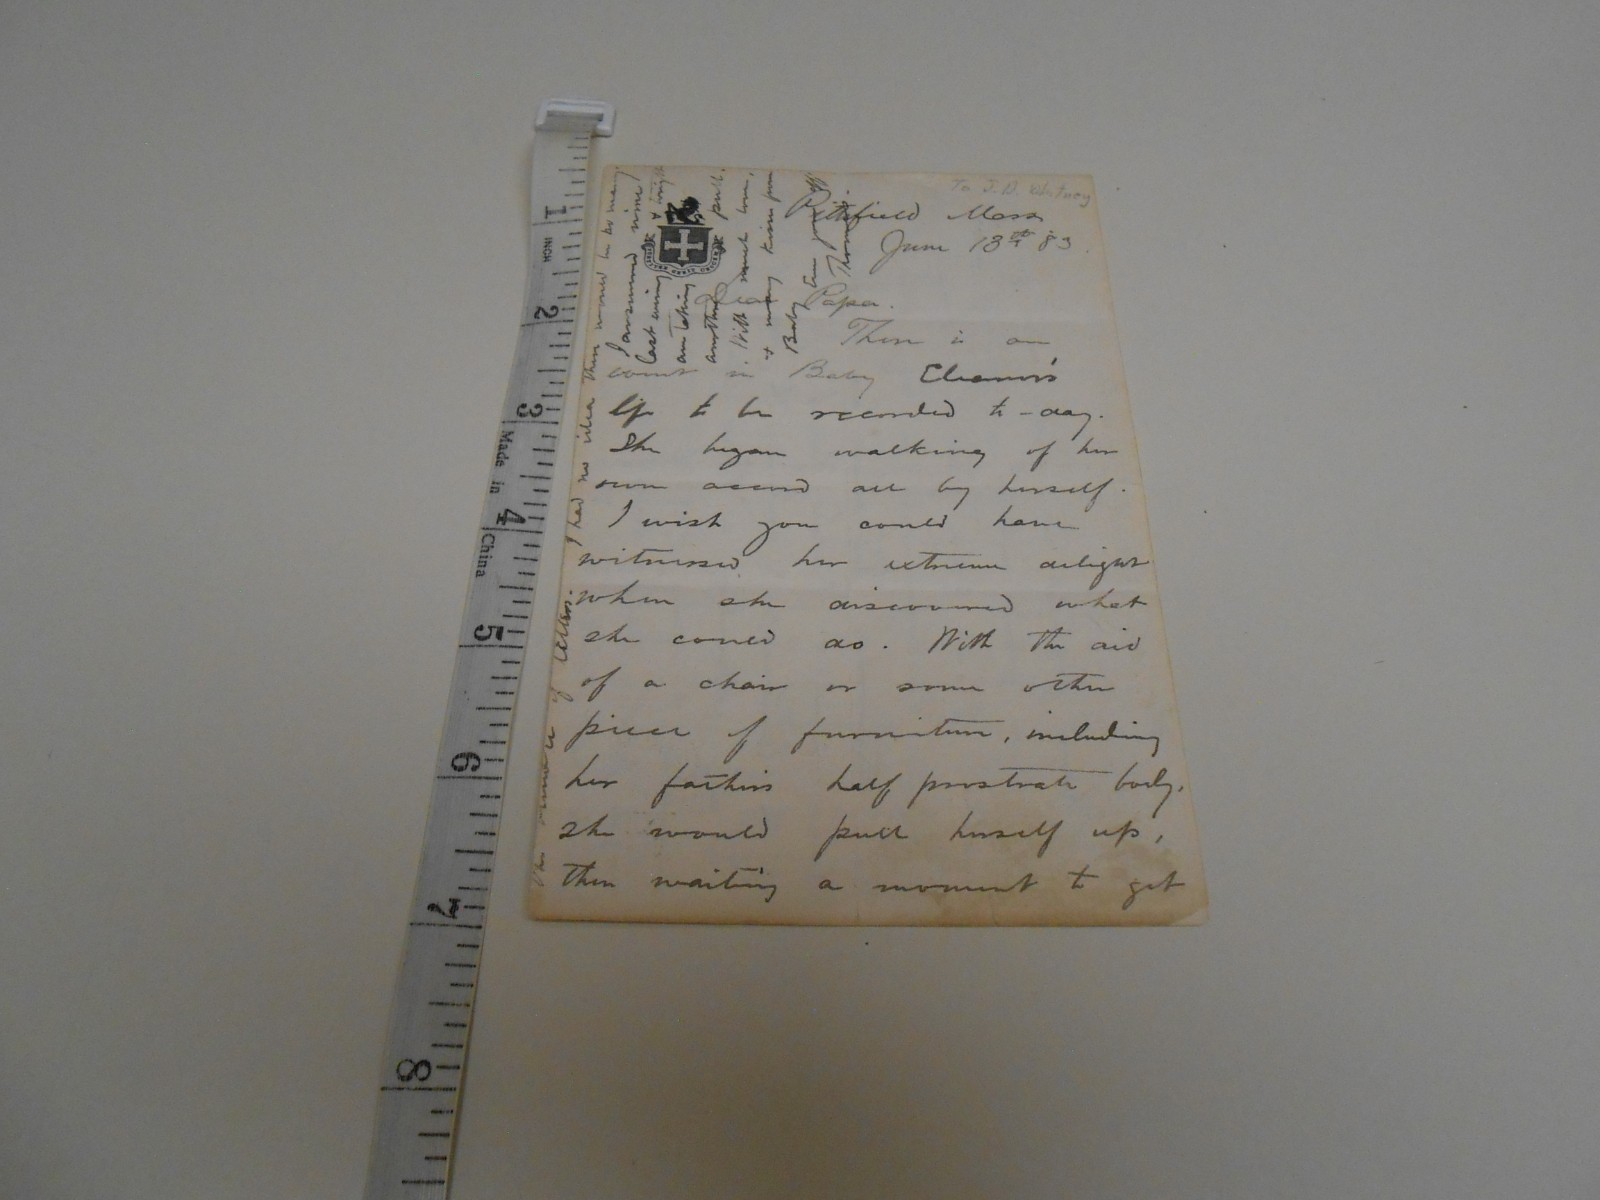 To J. D. Whitney
Pittsfield Mass
June 18th 83
Dear Papa.
There is an
event in Baby Eleanor's
life to be recorded to-day.
She began walking of her
own accord all by herself.
I wish you could have
witnessed her extreme delight
when she discovered what
she could do. With the aid
of a chair or some other
piece of furniture, including
her father's half prostrate body,
she would pull herself up,
then waiting a moment to get
I had no idea there would be so many
of letters.
I answered nine
last evening
am taking
another pull.
With much love,
& many kisses from
Baby
1
INCH
2
3
Made in China
4
5
6
7
8